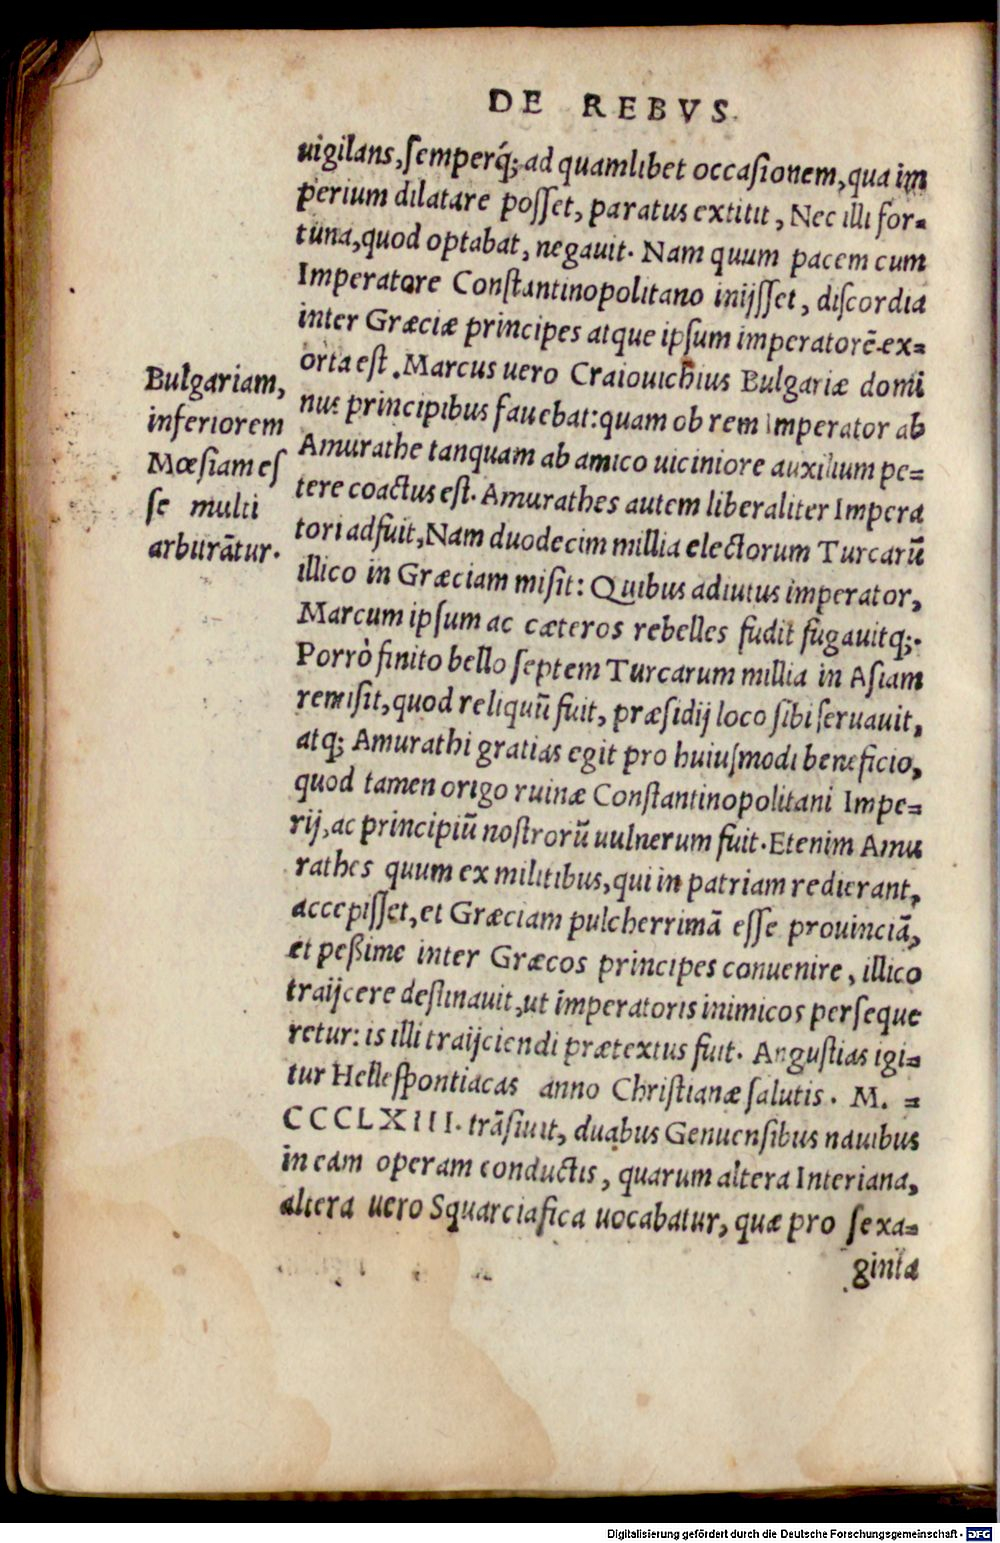 DE REBVS.
uigilans, semperq́; ad quamlibet occasionem, qua im
perium dilatare posset, paratus extitit, Nec illi for=
tuna, quod optabat, negauit. Nam quum pacem cum
Imperatore Constantinopolitano inijsset, discordia
inter Græciæ principes atque ipsum imperatorē ex=
orta est. Marcus uero Craiouichius Bulgariæ domi
nus principibus fauebat: quam ob rem imperator ab
Amurathe tanquam ab amico uiciniore auxilium pe=
tere coactus est. Amurathes autem liberaliter Impera
tori adfuit, Nam duodecim millia electorum Turcarū
illico in Græciam misit: Quibus adiutus imperator,
Marcum ipsum ac cæteros rebelles fudit fugauitq;.
Porrò finito bello septem Turcarum millia in Asiam
remisit, quod reliquū fuit, præsidij loco sibi seruauit,
atq; Amurathi gratias egit pro huiusmodi beneficio,
quod tamen origo ruinæ Constantinopolitani Impe=
rij, ac principiū nostrorū uulnerum fuit. Etenim Amu
rathes quum ex militibus, qui in patriam redierant,
accepisset, et Græciam pulcherrimā esse prouinciā,
et peßime inter Græcos principes conuenire, illico
traijcere destinauit, ut imperatoris inimicos perseque
retur: is illi traijciendi prætextus fuit. Angustias igi=
tur Hellespontiacas anno Christianæ salutis. M. =
CCCLXIII. trāsiuit, duabus Genuensibus nauibus
in eam operam conductis, quarum altera Interiana,
altera uero Squarciafica uocabatur, quæ pro sexa=
ginta
Bulgariam,
inferiorem
Mœsiam es
se multi
arbitrātur.
Digitalisierung gefördert durch die Deutsche Forschungsgemeinschaft - DFG